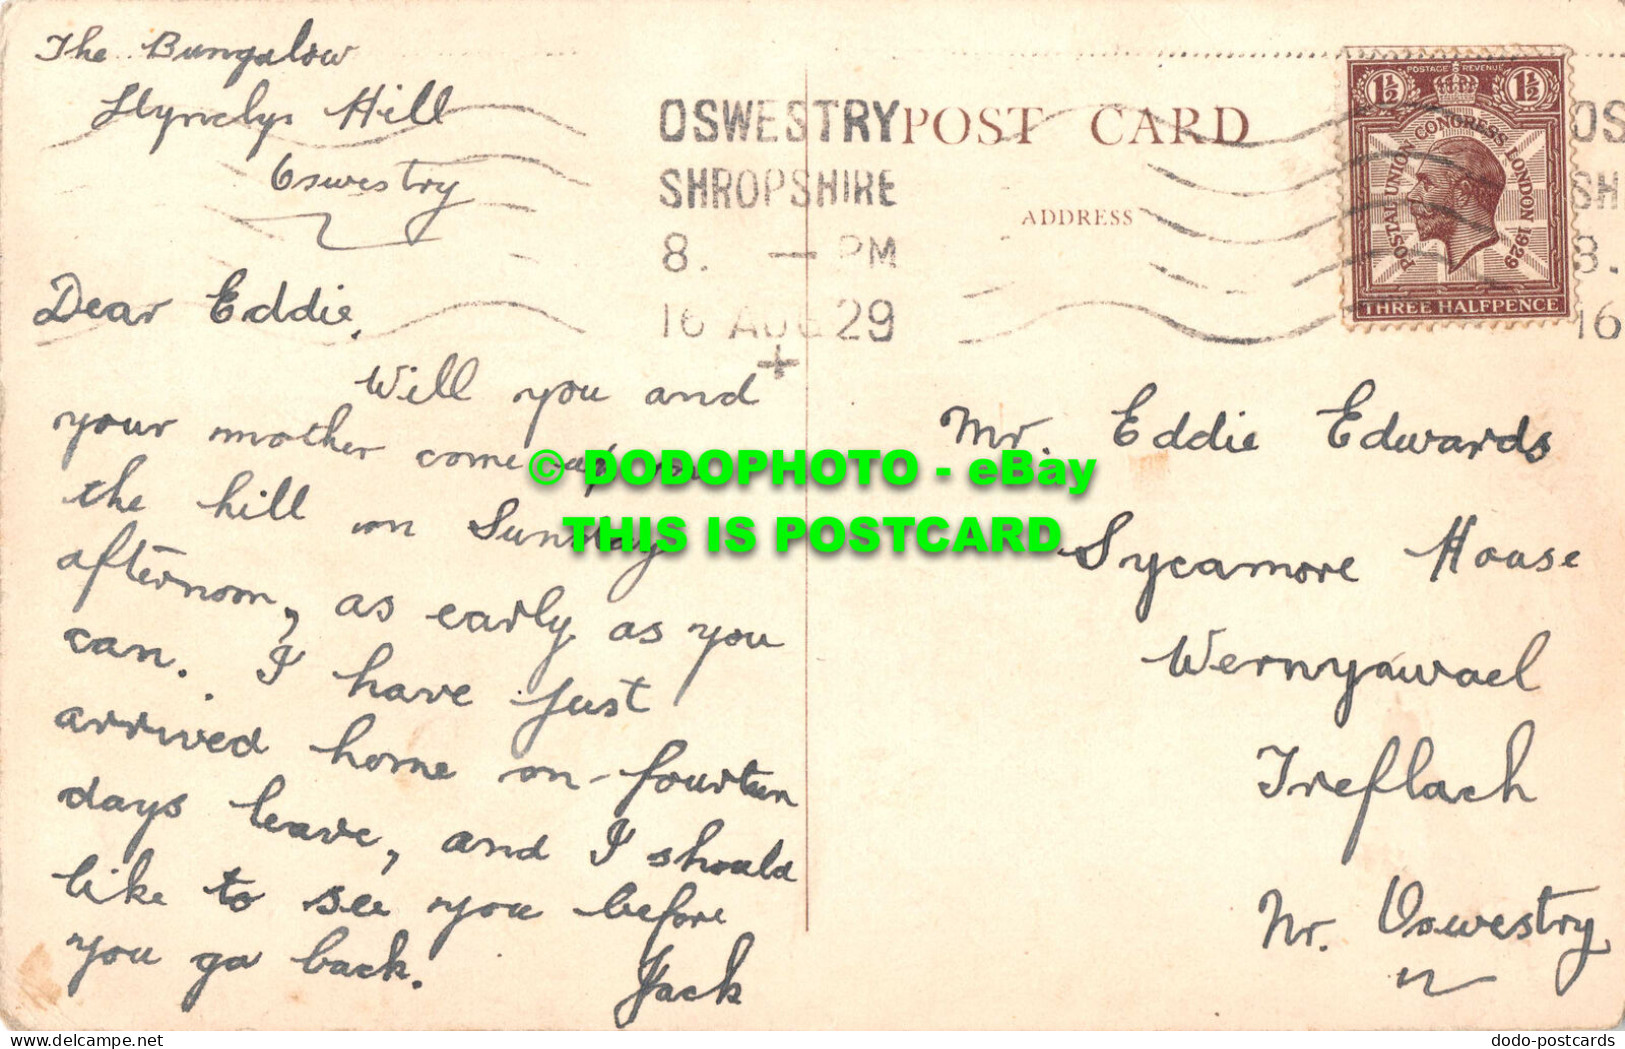 The Bungalow
Llynclys Hill
Oswestry
Dear Eddie,
Will you and
your mother come up
the hill on Sunday
afternoon, as early as you
can. I have just
arrived home on fourteen
days leave, and I should
like to see you before
you go back.
Jack
OSWESTRY
SHROPSHIRE
8. — PM
16 AUG 29
POST CARD
ADDRESS
POSTAGE REVENUE
1½ 1½
POSTAL UNION CONGRESS LONDON 1929
THREE HALFPENCE
OS
SH
8.
16
Mr. Eddie Edwards
Sycamore House
Wernyawael
Treflach
Nr. Oswestry
© DODOPHOTO - eBay
THIS IS POSTCARD
delcampe.net
dodo-postcards